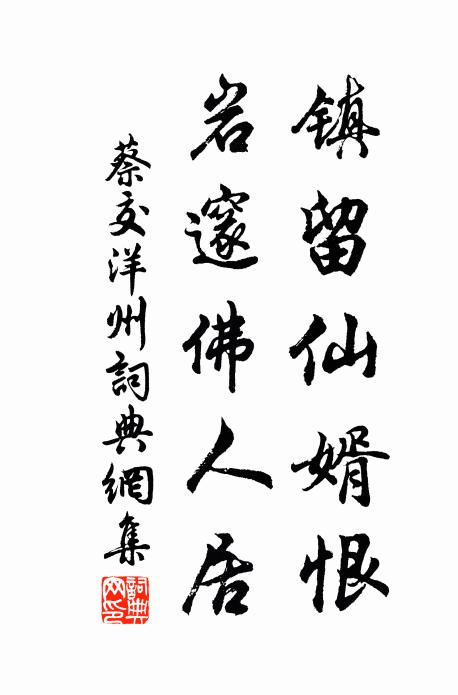 镇留仙婿恨
岩邃佛人居
蔡交洋州詞典網集
詞典网印